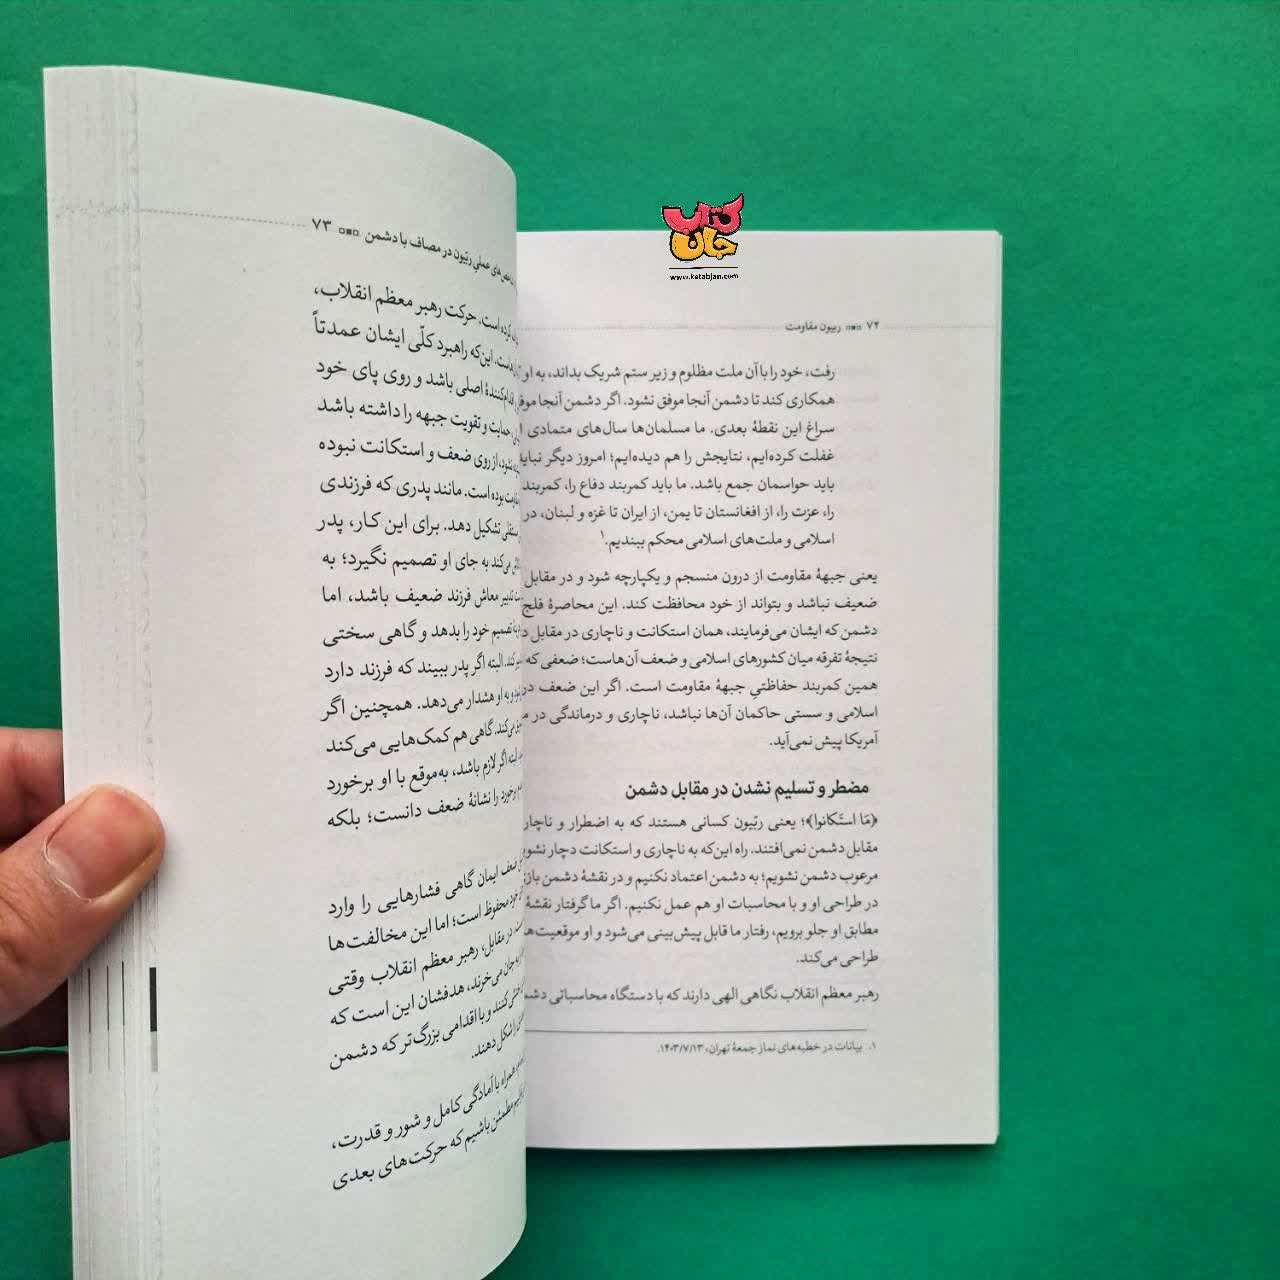 کتاب
جان
www.ketabjan.com
های عملی ربّیون در مصاف با دشمن ۷۳
کرده است. حرکت رهبر معظم انقلاب،
است. این‌که راهبرد کلّی ایشان عمدتاً
اصلی باشد و روی پای خود
حمایت و تقویت جبهه را داشته باشد
نشود، از روی ضعف و استکانت نبوده
بوده است. مانند پدری که فرزندی
تشکیل دهد. برای این کار، پدر
می‌کند به جای او تصمیم نگیرد؛ به
تدبیر معاش فرزند ضعیف باشد، اما
تصمیم خود را بدهد و گاهی سختی
البته اگر پدر ببیند که فرزند دارد
و به او هشدار می‌دهد. همچنین اگر
می‌کند. گاهی هم کمک‌هایی می‌کند
البته اگر لازم باشد، به‌موقع با او برخورد
برخورد را نشانهٔ ضعف دانست؛ بلکه
ضعف ایمان گاهی فشارهایی را وارد
خود محفوظ است؛ اما این مخالفت‌ها
در مقابل، رهبر معظم انقلاب وقتی
به جان می‌خرند، هدفشان این است که
کنند و با اقدامی بزرگ‌تر که دشمن
را شکل دهند.
همراه با آمادگی کامل و شور و قدرت،
مطمئن باشیم که حرکت‌های بعدی
۷۴ ربیون مقاومت
رفت، خود را با آن ملت مظلوم و زیر ستم شریک بداند، به او
همکاری کند تا دشمن آنجا موفق نشود. اگر دشمن آنجا موفق
سراغ این نقطهٔ بعدی. ما مسلمان‌ها سال‌های متمادی
غفلت کرده‌ایم، نتایجش را هم دیده‌ایم؛ امروز دیگر نباید
باید حواسمان جمع باشد. ما باید کمربند دفاع را، کمربند
را، عزت را، از افغانستان تا یمن، از ایران تا غزه و لبنان، در
اسلامی و ملت‌های اسلامی محکم ببندیم.۱
یعنی جبههٔ مقاومت از درون منسجم و یکپارچه شود و در مقابل
ضعیف نباشد و بتواند از خود محافظت کند. این محاصرهٔ فلج
دشمن که ایشان می‌فرمایند، همان استکانت و ناچاری در مقابل
نتیجهٔ تفرقه میان کشورهای اسلامی و ضعف آن‌هاست؛ ضعفی که
همین کمربند حفاظتیِ جبههٔ مقاومت است. اگر این ضعف
اسلامی و سستی حاکمان آن‌ها نباشد، ناچاری و درماندگی در
آمریکا پیش نمی‌آید.
مضطر و تسلیم نشدن در مقابل دشمن
﴿مَا استَکانوا﴾؛ یعنی ربّیون کسانی هستند که به اضطرار و ناچار
مقابل دشمن نمی‌افتند. راه این‌که به ناچاری و استکانت دچار نشو
مرعوب دشمن نشویم؛ به دشمن اعتماد نکنیم و در نقشهٔ دشمن
در طراحی او و با محاسبات او هم عمل نکنیم. اگر ما گرفتار نقشهٔ
مطابق او جلو برویم، رفتار ما قابل پیش‌بینی می‌شود و او موقعیت‌ها
طراحی می‌کند.
رهبر معظم انقلاب نگاهی الهی دارند که با دستگاه محاسباتی
۱. بیانات در خطبه‌های نماز جمعهٔ تهران، ۱۴۰۳/۷/۱۳.